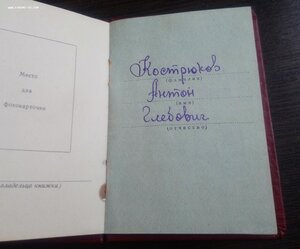 Место
для
фотокарточки
владельца книжки)
Кострюков
(фамилия)
Антон
(имя)
Глебович
(отчество)